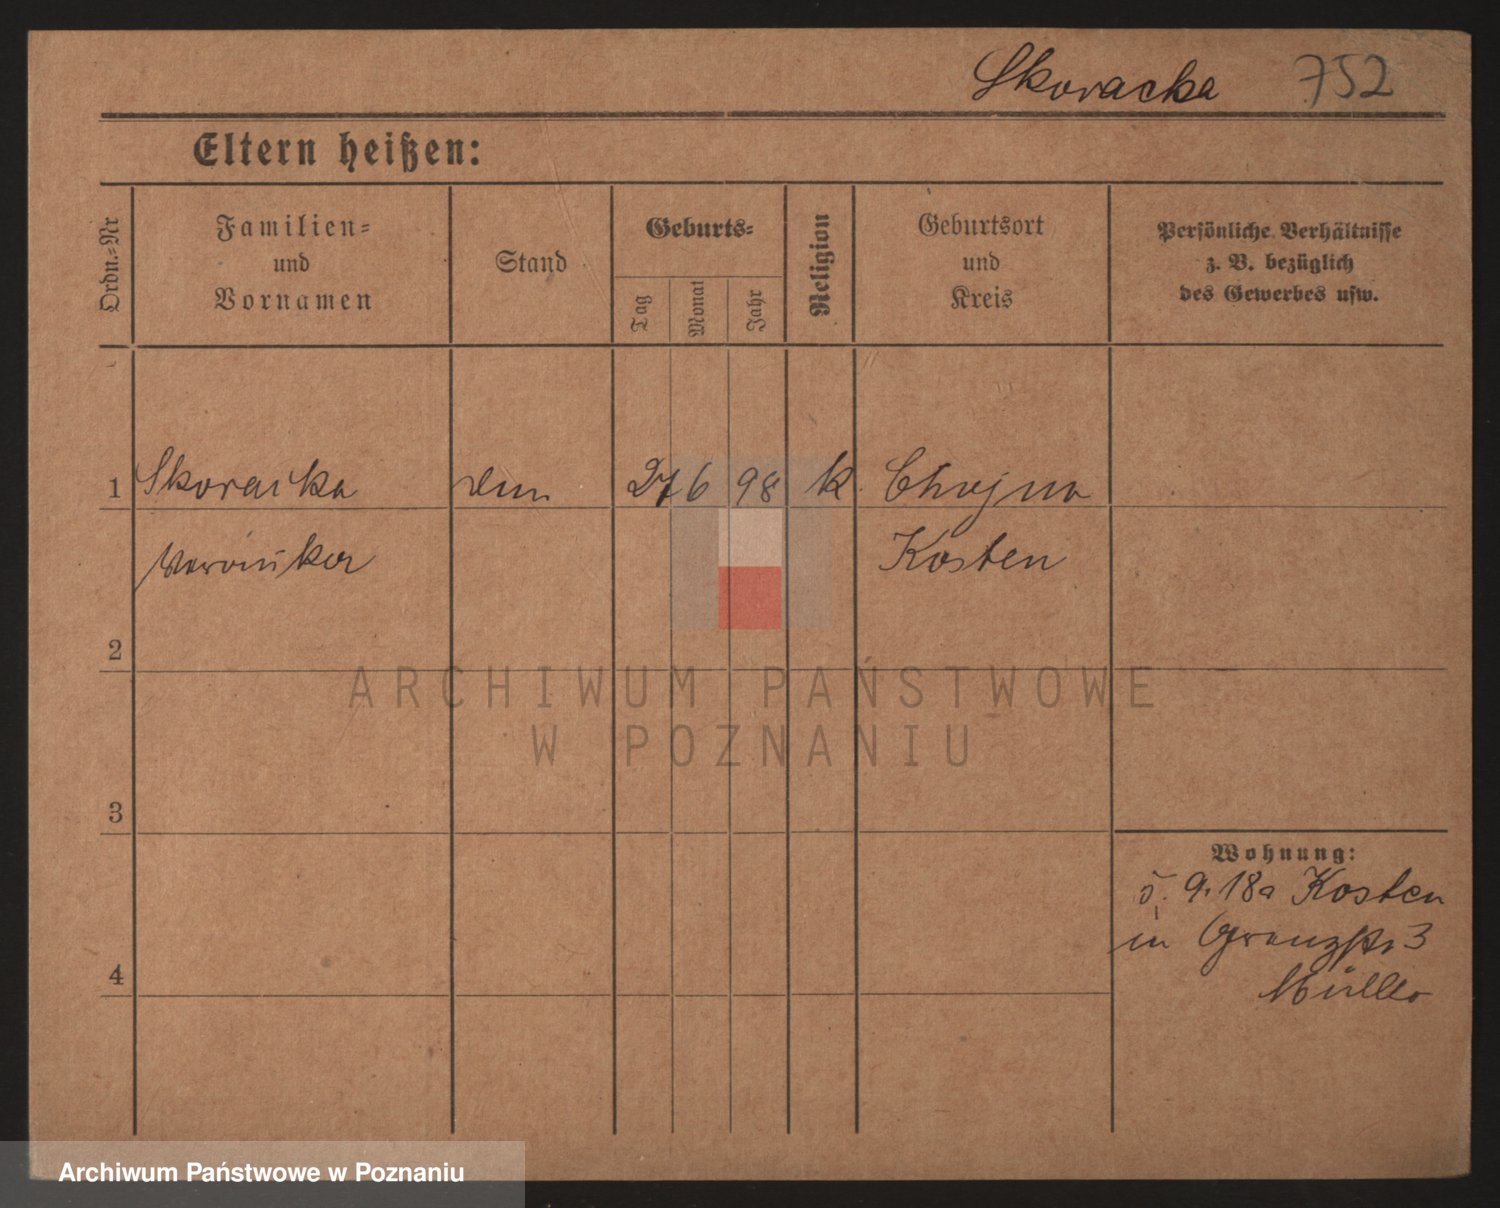 Skoracka 752
Eltern heißen:
Ordn.-Nr
Familien-
und
Vornamen
Stand
Geburts-
Tag
Monat
Jahr
Religion
Geburtsort
und
Kreis
Persönliche Verhältnisse
z. B. bezüglich
des Gewerbes usw.
1 Skoracka 27 6 98 k. Chojno
Kosten
2
3
4
Wohnung:
5. 9. 18 Kosten
in Grenzstr 3
Müller
ARCHIWUM PAŃSTWOWE
W POZNANIU
Archiwum Państwowe w Poznaniu